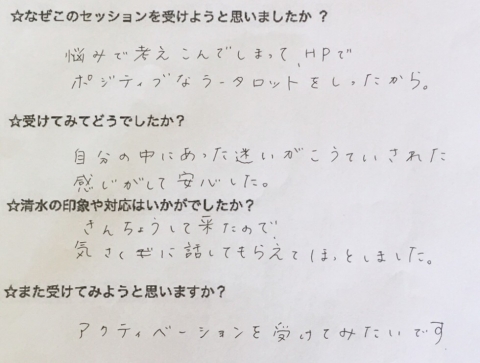 ☆なぜこのセッションを受けようと思いましたか ?
悩みで考えこんでしまって、HPで
ポジティブなラータロットをしったから。
☆受けてみてどうでしたか?
自分の中にあった迷いがこうていされた
感じがして安心した。
☆清水の印象や対応はいかがでしたか?
きんちょうして来たので、
気さくに話してもらえてほっとしました。
☆また受けてみようと思いますか?
アクティベーションを受けてみたいです